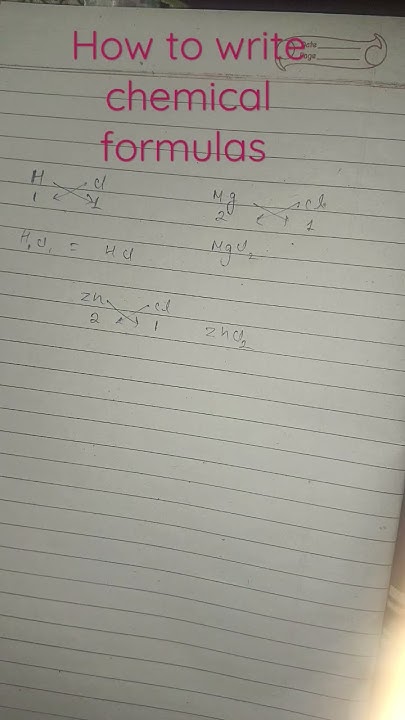 How to write
chemical
formulas
Date
Page
H Cl
1 1
H₁Cl₁ = HCl
Mg Cl
2 1
MgCl₂
Zn Cl
2 1
ZnCl₂